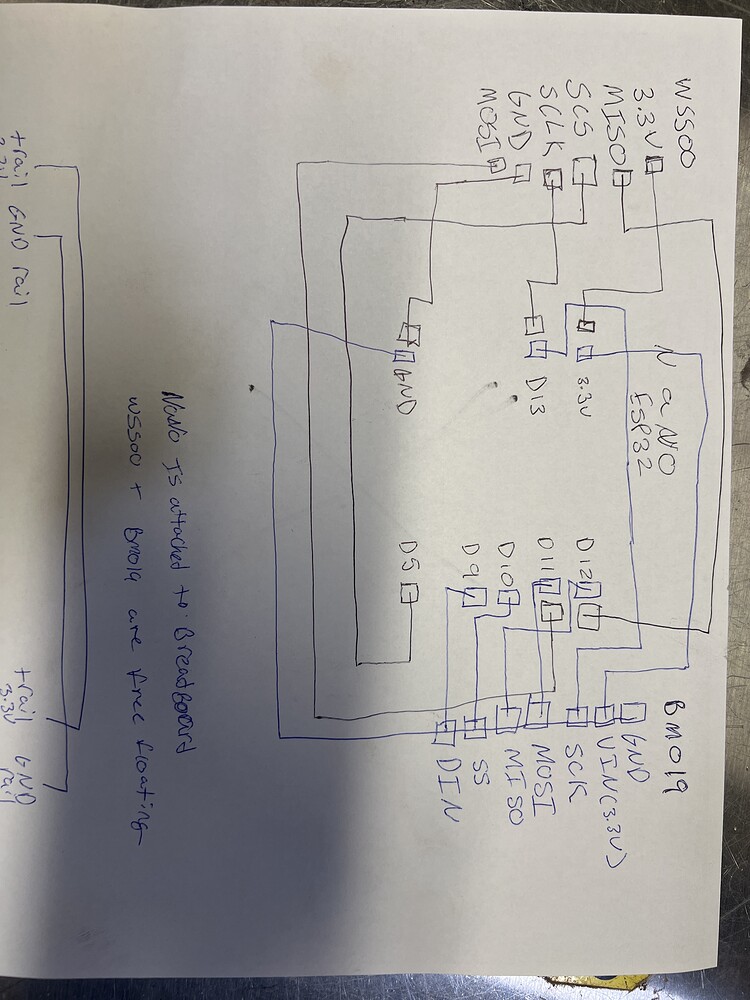 W5500
3.3V
MISO
SCS
SCLK
GND
MOSI
NaNO
ESP32
3.3V
D13
GND
D12
D11
D10
D9
D5
BM019
GND
VIN(3.3V)
SCK
MOSI
MISO
SS
DIN
Nano Is attached to Breadboard
W5500 + BM019 are free floating
+rail
GND rail
+rail
3.3V
GND
rail